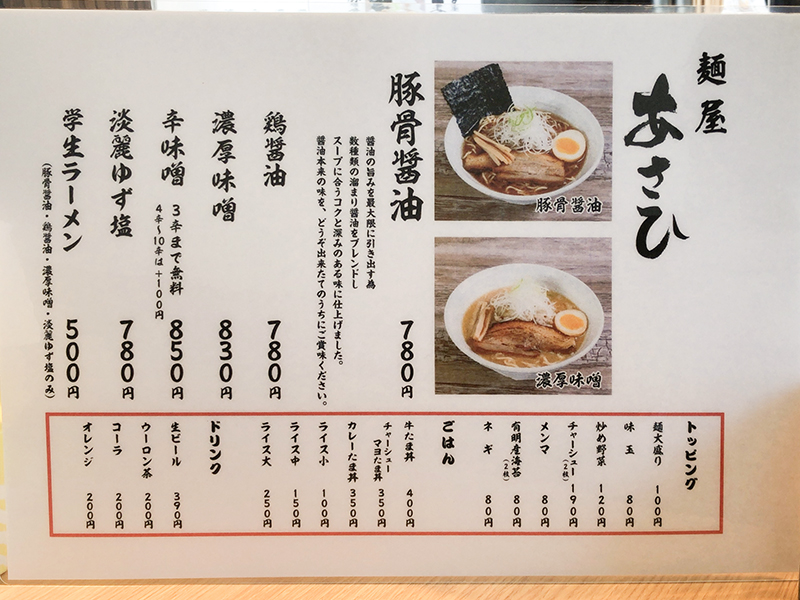 麺屋
あさひ
豚骨醤油
濃厚味噌
豚骨醤油 780円
醤油の旨みを最大限に引き出す為
数種類の溜まり醤油をブレンドし
スープに合うコクと深みのある味に仕上げました。
醤油本来の味を、どうぞ出来たてのうちにご賞味ください。
鶏醤油 780円
濃厚味噌 830円
辛味噌 3辛まで無料 850円
4辛〜10辛は+100円
淡麗ゆず塩 780円
学生ラーメン 500円
(豚骨醤油・鶏醤油・濃厚味噌・淡麗ゆず塩のみ)
トッピング
麺大盛り 100円
味玉 80円
炒め野菜 120円
チャーシュー(2枚) 190円
メンマ 80円
有明産海苔(2枚) 80円
ネギ 80円
ごはん
牛たま丼 400円
チャーシュー
マヨたま丼 350円
カレーたま丼 350円
ライス小 100円
ライス中 150円
ライス大 250円
ドリンク
生ビール 390円
ウーロン茶 200円
コーラ 200円
オレンジ 200円